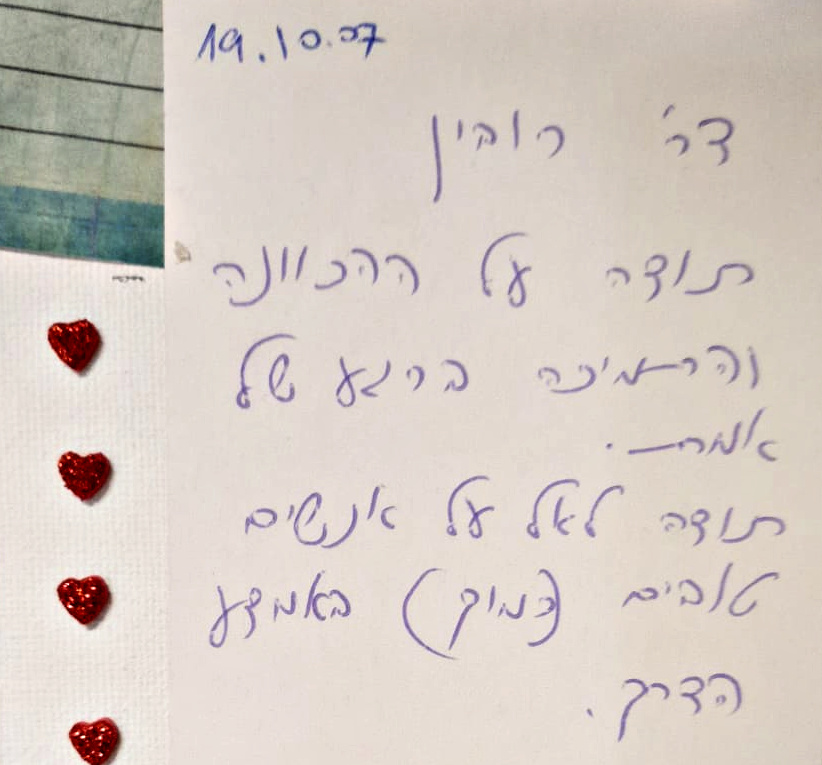 19.10.07
דר' רובין
תודה על ההכוונה
והתמיכה ברגע של
אמת.
תודה לאל על אנשים
טובים (כמוך) באמצע
הדרך.